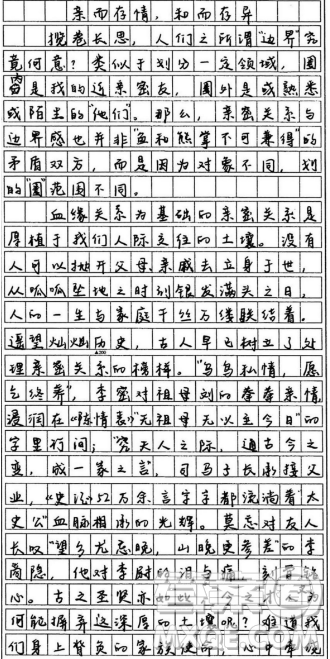 亲而存情，和而存异
揽卷长思，人们之所谓“边界”究
竟何意？类似于划分一定领域，圈
内是我的近亲密友，圈外是或熟悉
或陌生的“他们”。那么，亲密关系与
边界感也并非“鱼和熊掌不可兼得”的
矛盾双方，而是因为对象不同，划
的“圈”范围不同。
血缘关系为基础的亲密关系是
厚植于我们人际交往的土壤。没有
人可以抛开父母、亲戚去立身于世，
从呱呱坠地之时到银发满头之日，
人的一生与家庭千丝万缕联结着。
遥望灿灿历史，古人早已树立了处
理亲密关系的榜样。“乌鸟私情，愿
乞终养”，李密对祖母刘的拳拳亲情
浸润在《陈情表》“无祖母无以至今日”的
字里行间；“究天人之际，通古今之
变，成一家之言”，司马子长承接父
业，《史记》52万余言字字都流淌着“太
史公”血脉相承的光辉。莫忘对友人
长叹“望乡尤忌晚，山晚更参差”的李
商隐，他对李尉的
心。古之至贤亦如此，今之
何能摒弃这深厚的土壤呢？难道我
们身上背负的家族使命、心中牵绕